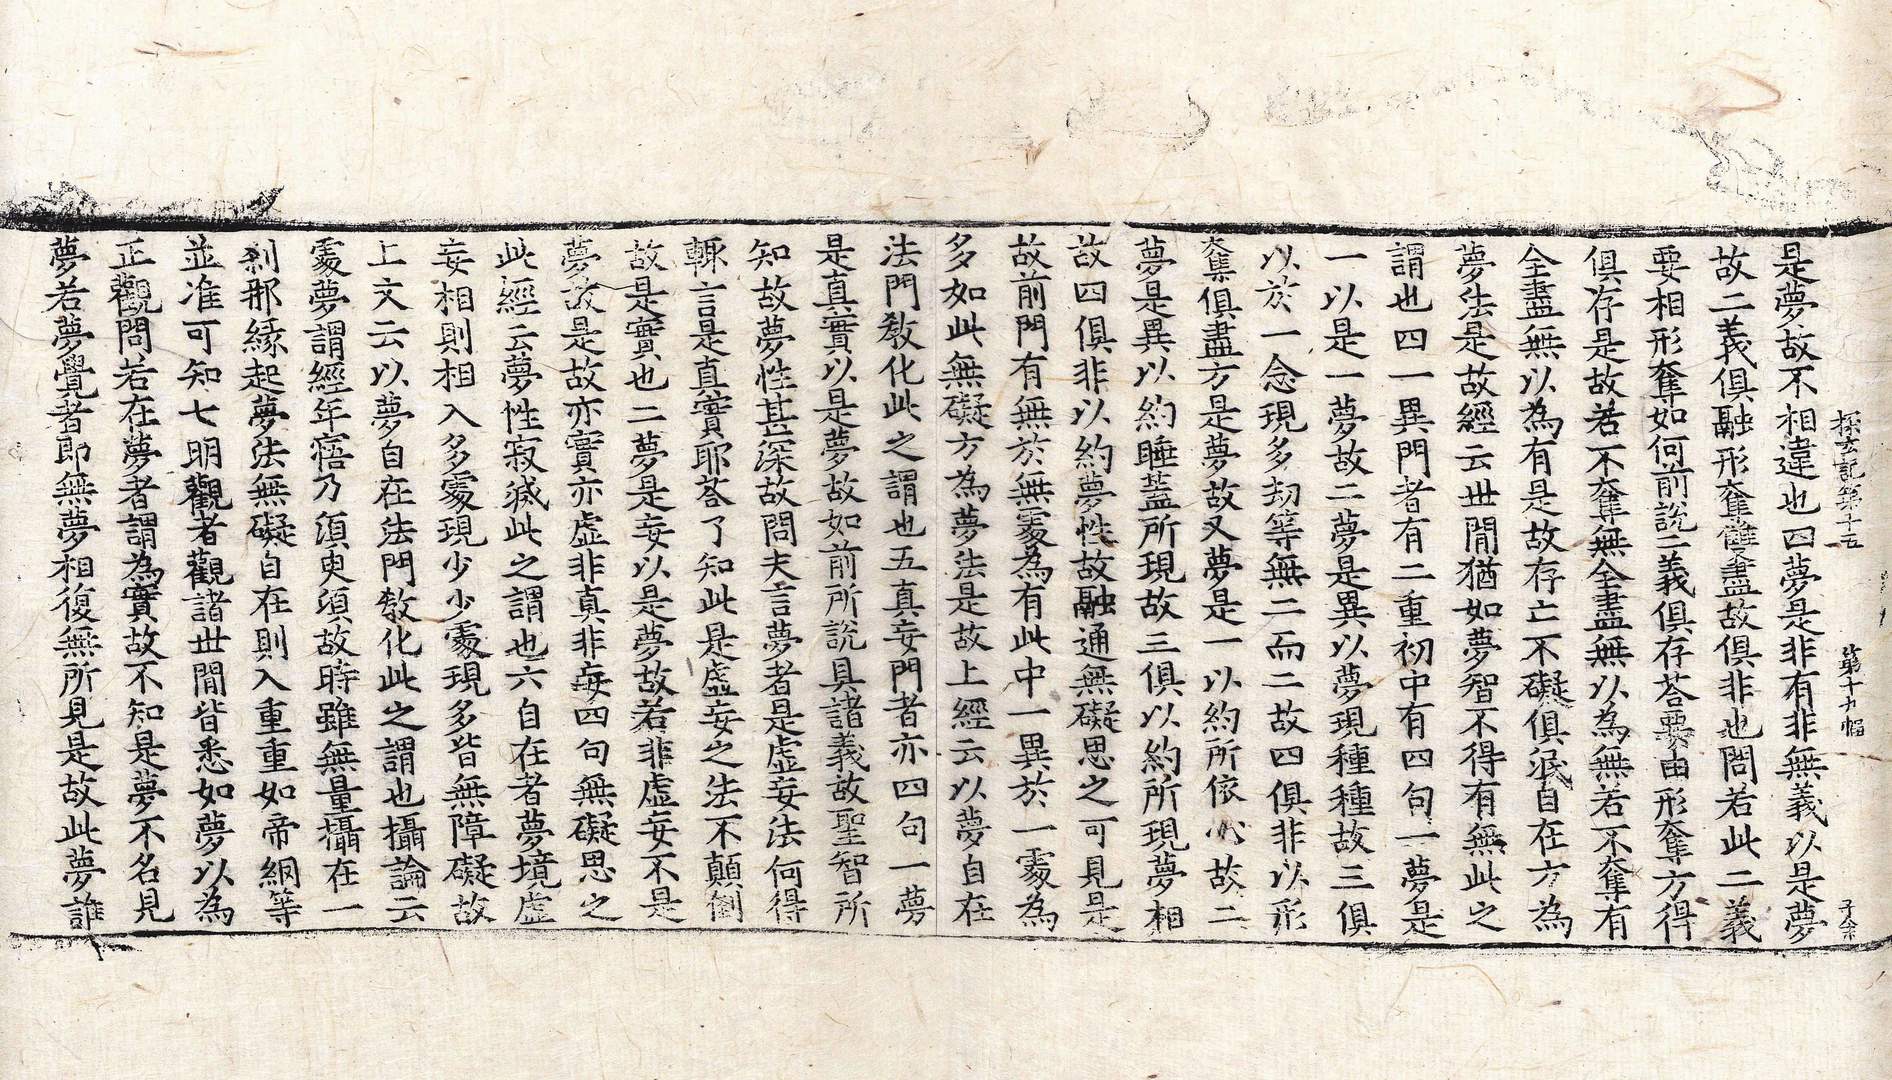 探玄記第十五 第十九幅 子余
是夢故不相違也四夢是非有非無義以是夢
故二義俱融形奪雙盡故俱非也問若此二義
要相形奪如何前說二義俱存荅要由形奪方得
俱存是故若不奪無全盡無以為無若不奪有
全盡無以為有是故存亡不礙俱泯自在方為
夢法是故經云世間猶如夢智不得有無此之
謂也四一異門者有二重初中有四句一夢是
一以是一夢故二夢是異以夢現種種故三俱
以於一念現多劫等無二而二故四俱非以形
奪俱盡方是夢故又夢是一以約所依心故二
夢是異以約睡蓋所現故三俱以約所現夢相
故四俱非以約夢性故融通無礙思之可見是
故前門有無於無處為有此中一異於一處為
多如此無礙方為夢法是故上經云以夢自在
法門教化此之謂也五真妄門者亦四句一夢
是真實以是夢故如前所說具諸義故聖智所
知故夢性甚深故問夫言夢者是虛妄法何得
輙言是真實耶荅了知此是虛妄之法不顛倒
故是實也二夢是妄以是夢故若非虛妄不是
夢故是故亦實亦虛非真非妄四句無礙思之
此經云夢性寂滅此之謂也六自在者夢境虛
妄相則相入多處現少少處現多皆無障礙故
上文云以夢自在法門教化此之謂也攝論云
處夢謂經年寤乃須臾頃故時雖無量攝在一
剎那緣起夢法無礙自在則入重重如帝網等
並准可知七明觀者觀諸世間皆悉如夢以為
正觀問若在夢者謂為實故不知是夢不名見
夢若夢覺者即無夢相復無所見是故此夢誰